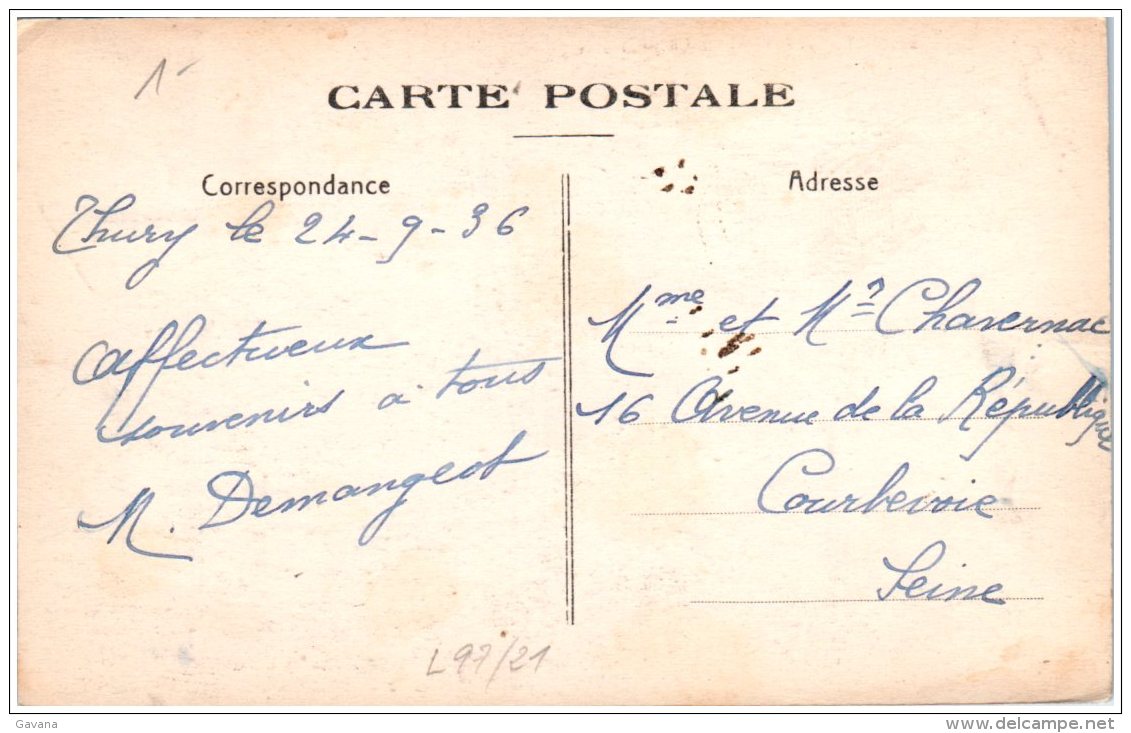 1-
CARTE POSTALE
Correspondance
Thury le 24-9-36
Affectueux
souvenirs à tous
M. Demangeot
Adresse
Mme et Mr Chavernac
16 Avenue de la République
Courbevoie
Seine
L97/21
Gavana
www.delcampe.net